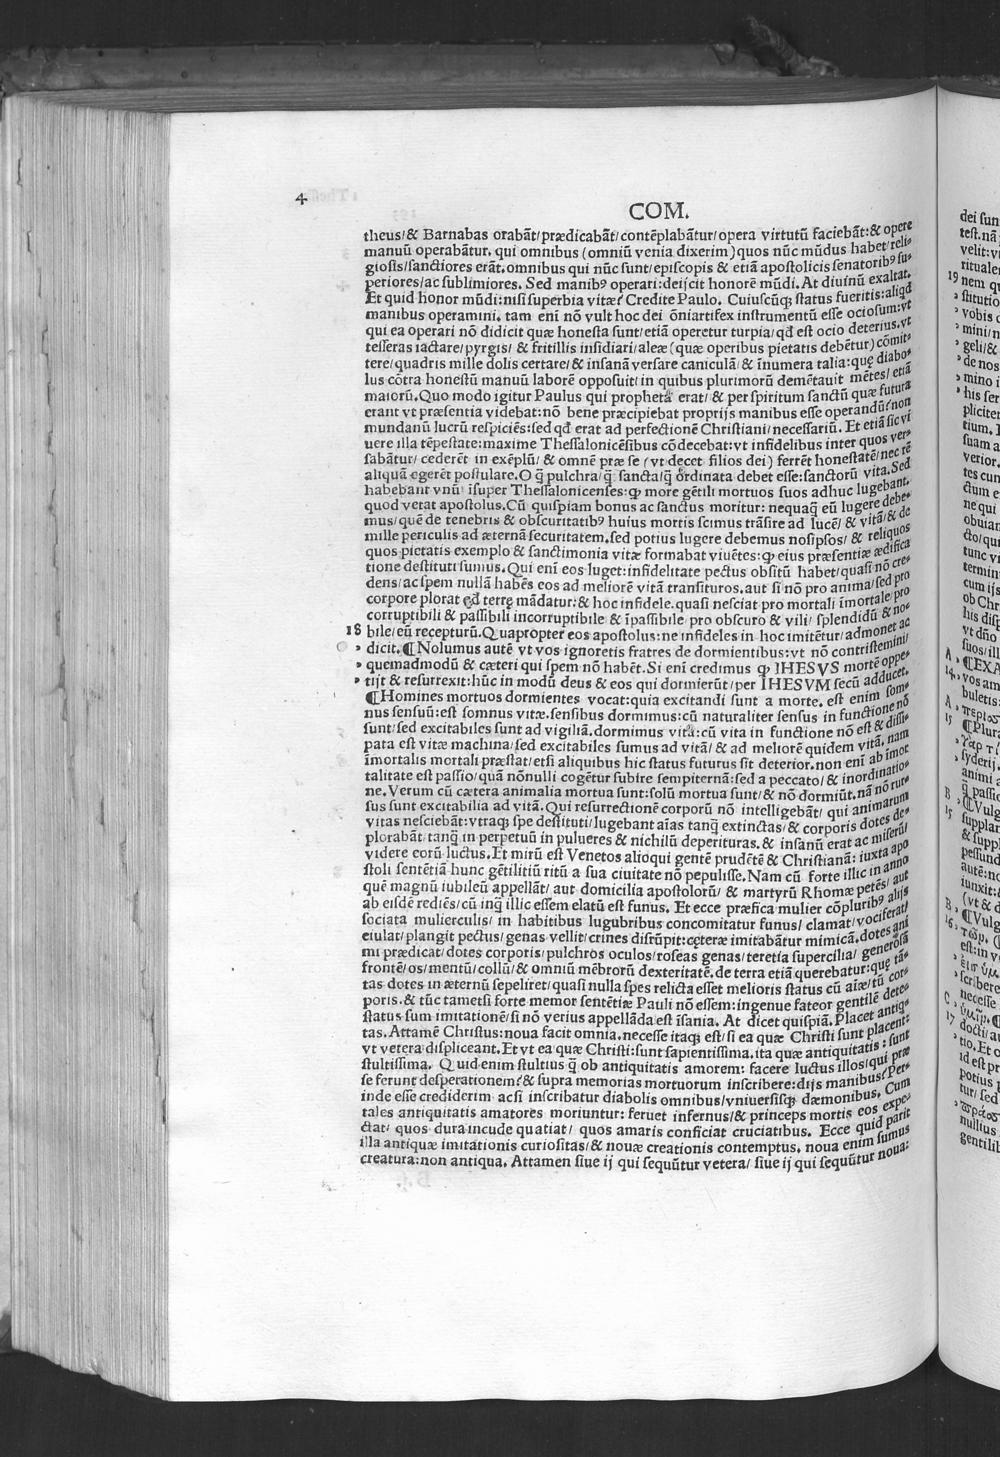 4
COM.
theus/& Barnabas orabāt/prædicabāt/contēplabātur/opera virtutū faciebāt:& opere
manuū operabātur. qui omnibus (omniū venia dixerim) quos nūc mūdus habet/reli-
giosis/sanctiores erāt. omnibus qui nūc sunt/episcopis & etiā apostolicis senatoribꝰ su-
periores/ac sublimiores. Sed manibꝰ operari:deijcit honorē mūdi. At diuinū exaltat.
Et quid honor mūdi:nisi superbia vitæ? Credite Paulo. Cuiuscūꝗ status fueritis:aliqđ
manibus operamini. tam enī nō vult hoc dei ōniartifex instrumentū esse ociosum:vt
qui ea operari nō didicit quæ honesta sunt/etiā operetur turpia/qđ est ocio deterius.vt
tesseras iactare/pyrgis/ & fritillis insidiari/aleæ (quæ operibus pietatis debētur) cōmit-
tere/quadris mille dolis certare/& insanā versare caniculā/& īnumera talia:quę diabo-
lus cōtra honestū manuū laborē opposuit/in quibus plurimorū demētauit mētes/etiā
maiorū.Quo modo igitur Paulus qui propheta erat/& per spiritum sanctū quæ futura
erant vt præsentia videbat:nō bene præcipiebat proprijs manibus esse operandū?non
mundanū lucrū respiciēs:sed qđ erat ad perfectionē Christiani/necessariū. Et etiā sic vi
uere illa tēpestate:maxime Thessalonicēsibus cōdecebat:vt infidelibus inter quos ver-
sabātur/ cederēt in exēplū/ & omnē præ se (vt decet filios dei) ferrēt honestatē/nec rē
aliquā egerēt postulare.O q̄ pulchra/q̄ sancta/q̄ ordinata debet esse:sanctorū vita.Sed
habebant vnū īsuper Thessalonicenses:ꝙ more gētili mortuos suos adhuc lugebant.
quod vetat apostolus.Cū quispiam bonus ac sanctus moritur: nequaꝗ eū lugere debe-
mus/quē de tenebris & obscuritatibꝰ huius mortis scimus trāsire ad lucē/ & vitā/& de
mille periculis ad æternā securitatem.sed potius lugere debemus nosipsos/ & reliquos
quos pietatis exemplo & sanctimonia vitæ formabat viuētes:ꝙ eius præsentiæ ædifica
tione destituti sumus.Qui enī eos luget:infidelitate pectus obsitū habet/quasi nō cre-
dens/ac spem nullā habēs eos ad meliorē vitā transituros.aut si nō pro anima/sed pro
corpore plorat qđ terrę mādatur:& hoc infidele.quasi nesciat pro mortali īmortale/pro
corruptibili & passibili incorruptibile & īpassibile/pro obscuro & vili/ splendidū & no-
18 bile/eū recepturū.Quapropter eos apostolus:ne infideles in hoc imitētur/admonet ac
dicit.¶Nolumus autē vt vos ignoretis fratres de dormientibus:vt nō contristemini/
quemadmodū & cæteri qui spem nō habēt.Si enī credimus ꝙ IHESVS mortē oppe-
tijt & resurrexit:hūc in modū deus & eos qui dormierūt/per IHESVM secū adducet.
¶Homines mortuos dormientes vocat:quia excitandi sunt a morte. est enim som-
nus sensuū:est somnus vitæ.sensibus dormimus:cū naturaliter sensus in functione nō
sunt/sed excitabiles sunt ad vigiliā.dormimus vita:cū vita in functiōe nō est & dissi-
pata est vitæ machina/sed excitabiles sumus ad vitā/ & ad meliorē quidem vitā. nam
īmortalis mortali præstat/etsi aliquibus hic status futurus sit deterior.non enī ab īmor
talitate est passio/quā nōnulli cogētur subire sempiternā:sed a peccato/& inordinatio-
ne.Verum cū cætera animalia mortua sunt:solū mortua sunt/& nō dormiūt.nā nō rur-
sus sunt excitabilia ad vitā.Qui resurrectionē corporū nō intelligebāt/ qui animarum
vitas nesciebāt:vtraꝗ spe destituti/lugebant aīas tanꝗ extinctas/& corporis dotes de-
plorabāt/tanꝗ in perpetuū in pulueres & nichilū deperituras.& insanū erat ac miserū/
videre eorū luctus.Et mirū est Venetos alioqui gentē prudētē & Christianā: iuxta apo
stoli sentētiā hunc gētilitiū ritū a sua ciuitate nō pepulisse.Nam cū forte illic in anno
quē magnū iubileū appellāt/ aut domicilia apostolorū/ & martyrū Rhomæ petēs/ aut
ab eisdē rediēs/cū inꝗ illic essem elatū est funus. Et ecce præfica mulier cōpluribꝰ alijs
sociata mulierculis/ in habitibus lugubribus concomitatur funus/ clamat/vociferat/
eiulat/plangit pectus/genas vellit/crines disrūpit:cęteræ imitabātur mimicā.dotes ani
mi prædicat/dotes corporis/pulchros oculos/roseas genas/teretia supercilia/ generosā
frontē/os/mentū/collū/& omniū mēbrorū dexteritatē.de terra etiā querebatur:quę tā-
tas dotes in æternū sepeliret/quasi nulla spes relicta esset melioris status cū aīæ/tū cor-
poris.& tūc tametsi forte memor sentētiæ Pauli nō essem:ingenue fateor gentilē dete-
status sum imitationē/si nō verius appellāda est īsania. At dicet quispiā.Placet antiq-
tas.Attamē Christus:noua facit omnia.necesse itaꝗ est/si ea quæ Christi sunt placent:
vt vetera displiceant.Et vt ea quæ Christi:sunt sapientissima.ita quæ antiquitatis:sunt
stultissima. Quid enim stultius q̄ ob antiquitatis amorem: facere luctus illos/qui præ
se ferunt desperationem?& supra memorias mortuorum inscribere:dijs manibus?Per-
inde esse crediderim acsi inscribatur diabolis omnibus/vniuersisꝗ dæmonibus. Cum
tales antiquitatis amatores moriuntur: feruet infernus/& princeps mortis eos expe-
ctat/ quos dura incude quatiat/ quos amaris conficiat cruciatibus. Ecce quid parit
illa antiquæ imitationis curiositas/& nouæ creationis contemptus. noua enim sumus
creatura:non antiqua. Attamen siue ij qui sequūtur vetera/ siue ij qui sequūtur noua: